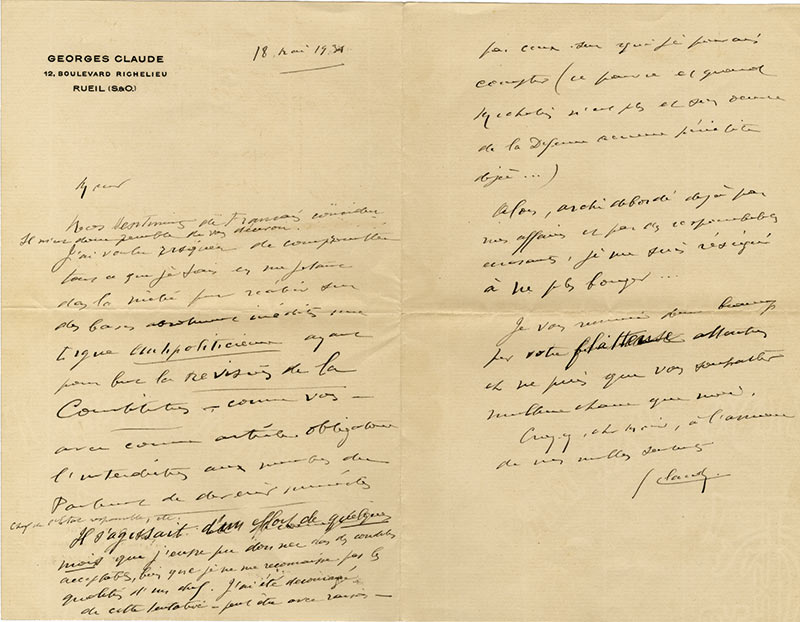 GEORGES CLAUDE
12, BOULEVARD RICHELIEU
RUEIL (S.&O.)
18 mai 1934
de Français
Il m'est
J'ai voulu risquer de compromettre
tout ce que je suis en me jetant
dans la mêlée pour
des bases absolument inédites une
Ligue antipoliticienne ayant
pour but la revision de la
Constitution – comme vos –
avec comme article obligatoire
l'interdiction aux membres du
Parlement de devenir ministres
Chef de l'Etat responsable, etc.
Il s'agissait d'un effort de quelques
mois que j'eusse pu donner dans des conditions
acceptables, bien que je ne me reconnaisse pas les
qualités d'un chef. J'ai été découragé
de cette tentative – peut être avec raison –
par ceux sur qui je pouvais
compter (ce pauvre et grand
n'est plus et
de la
déjà...)
Alors, archi débordé déjà par
mes affaires et par des responsabilités
je me suis résigné
à ne plus bouger...
Je vous remercie bien beaucoup
par votre flatteuse
et ne puis que vous souhaiter
meilleure chance que moi.
Croyez, cher Monsieur, à l'assurance
de mes meilleurs sentiments
G Claude